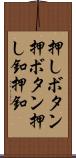 押しボタン
押ボタン押
し釦押釦